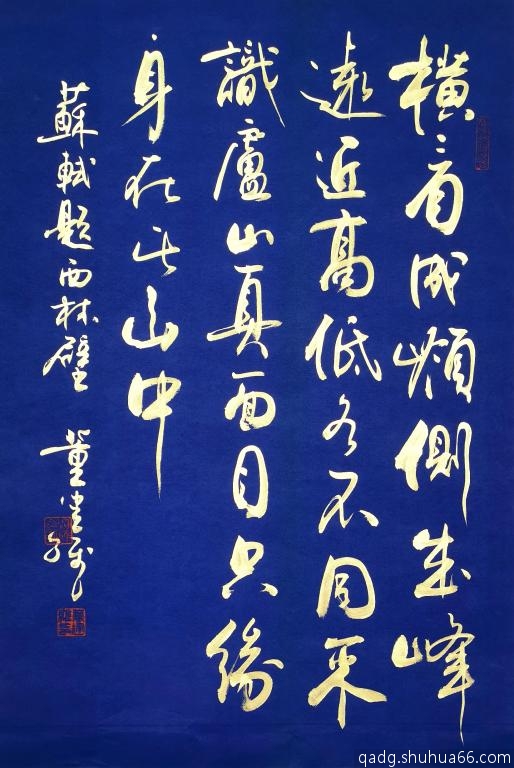 橫看成嶺側成峰
遠近高低各不同
識廬山真面目只緣
身在此山中
蘇軾題西林壁 董
qadg.shuhua66.com